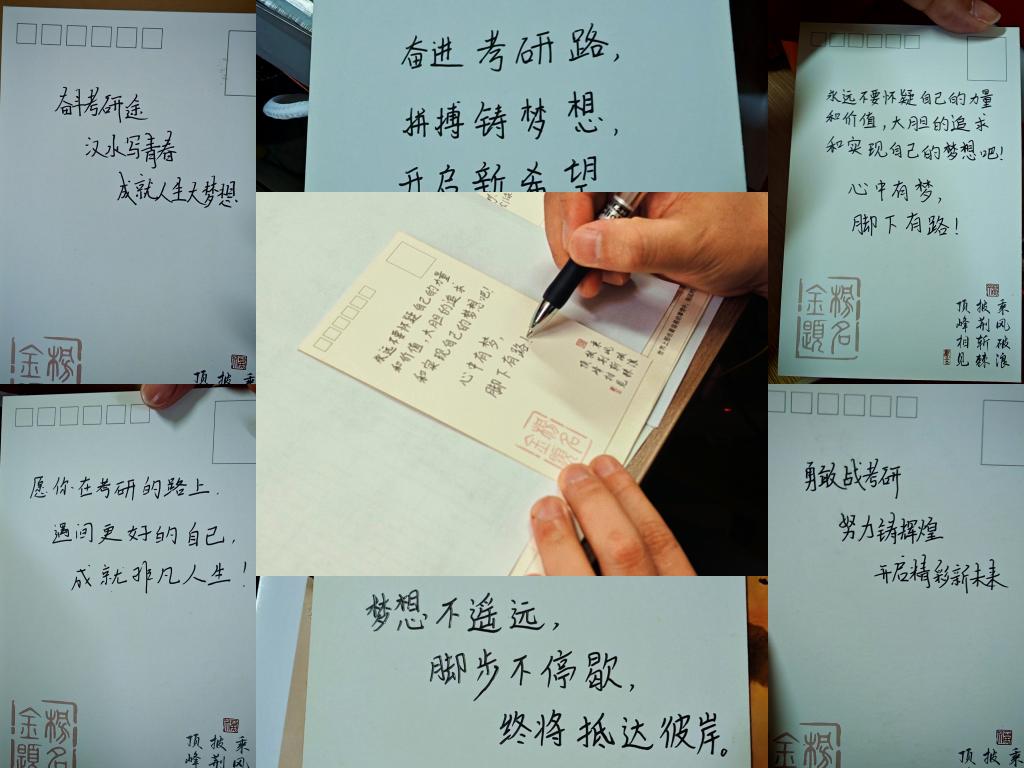 奋斗考研途
汉水写青春
成就人生大梦想
金榜
题名
顶披乘
奋进考研路,
拼搏铸梦想,
开启新希望
永远不要怀疑自己的力量
和价值,大胆的追求
和实现自己的梦想吧!
心中有梦,
脚下有路!
金榜题名
乘风破浪
披荆斩棘
顶峰相见
永远不要怀疑自己的力量
和价值,大胆的追求
和实现自己的梦想吧!
心中有梦,
脚下有路!
乘风破浪
披荆斩棘
顶峰相见
金榜题名
愿你在考研的路上,
遇间更好的自己,
成就非凡人生!
金榜
乘风
披荆
顶峰
梦想不遥远,
脚步不停歇,
终将抵达彼岸。
勇敢战考研
努力铸辉煌
开启精彩新未来
金榜
顶披乘